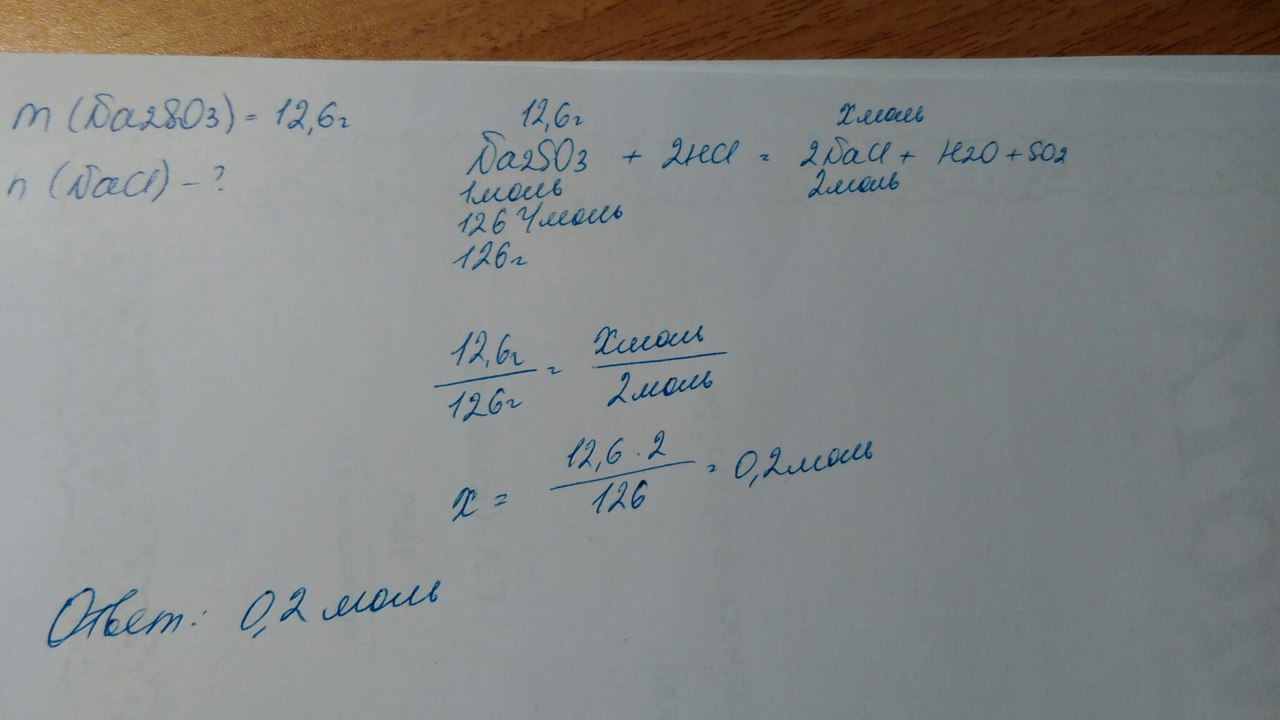 m (Na2SO3) = 12,6г
n (NaCl) - ?
12,6г xмоль
Na2SO3 + 2HCl = 2NaCl + H2O + SO2
1моль 2моль
126 г/моль
126г
12,6г / 126г = xмоль / 2моль
x = 12,6 · 2 / 126 = 0,2моль
Ответ: 0,2 моль